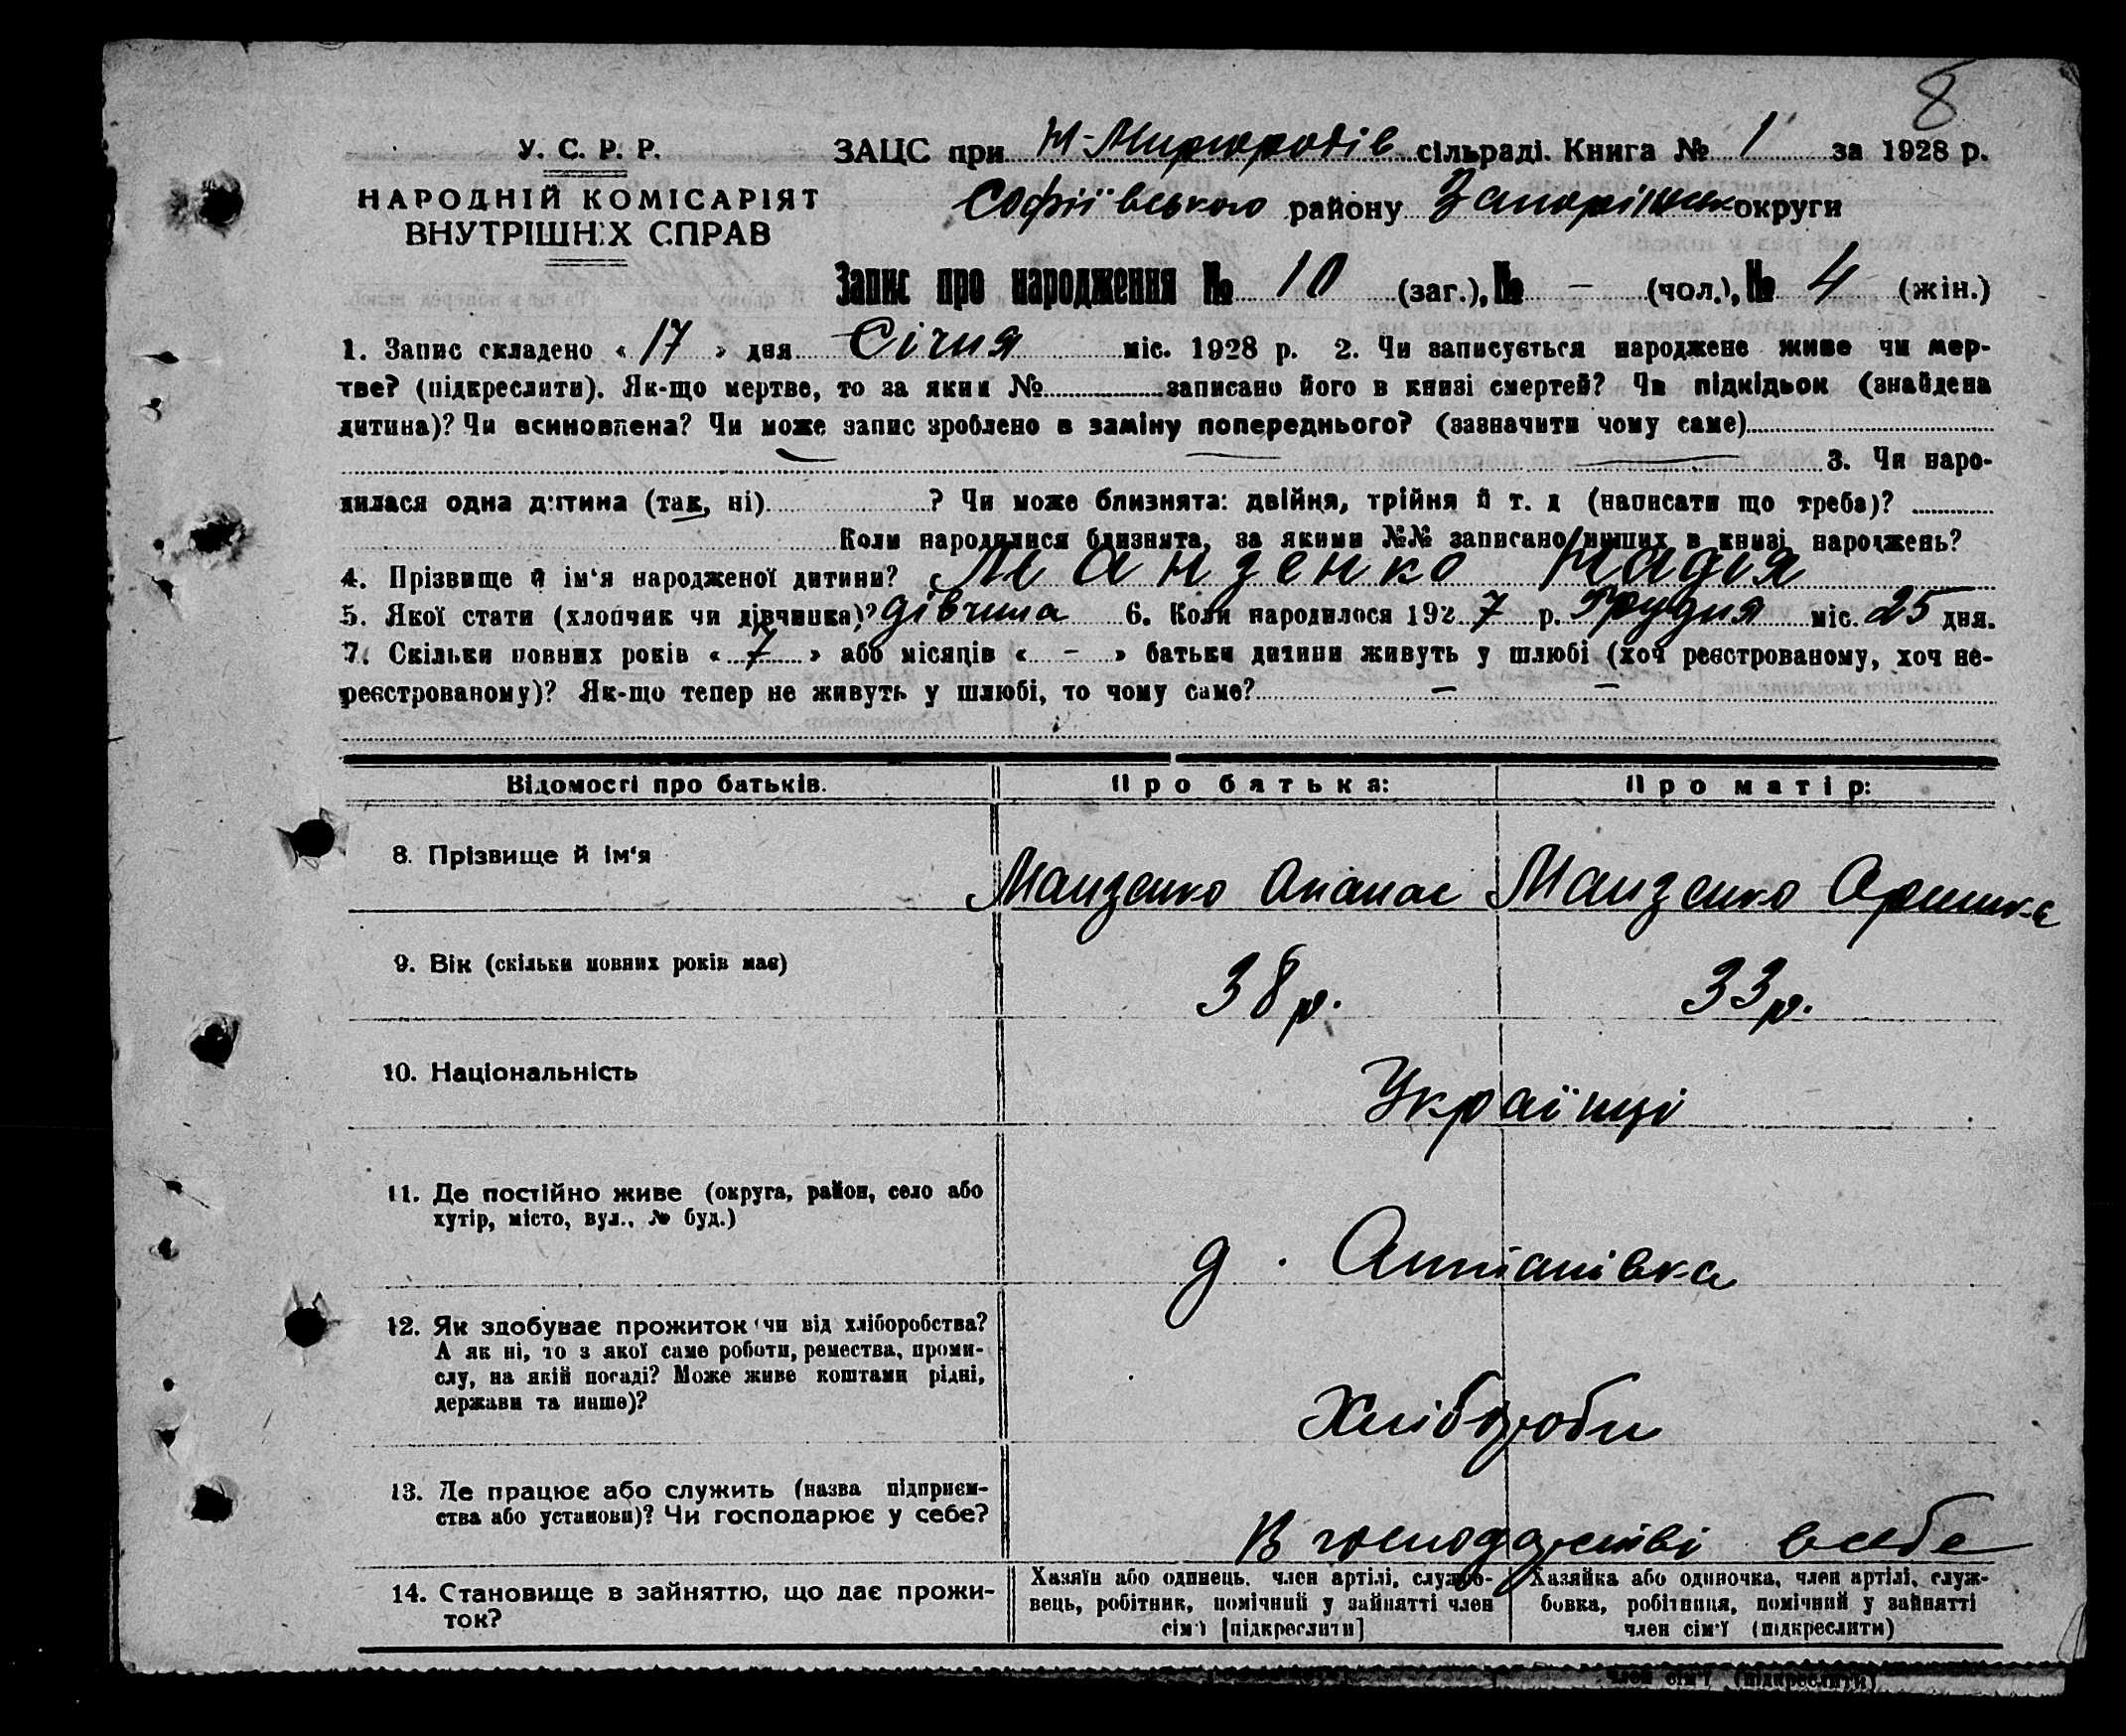 8
У. С. Р. Р.
НАРОДНІЙ КОМІСАРІЯТ
ВНУТРІШНІХ СПРАВ
ЗАЦС при Н-Миргородів сільраді. Книга № 1 за 1928 р.
Софіївського району Запоріжськ округи
Запис про народження № 10 (заг.), № - (чол.), № 4 (жін.)
1. Запис складено « 17 » дня Січня міс. 1928 р. 2. Чи записується народжене живе чи мер-
тве? (підкреслити). Як-що мертве, то за яким № записано його в книзі смертей? Чи підкідьок (знайдена
дитина)? Чи всиновлена? Чи може запис зроблено в заміну попереднього? (зазначити чому саме)
3. Чи наро-
дилася одна дитина (так, ні) ? Чи може близнята: двійня, трійня й т. д (написати що треба)?
Коли народилися близнята, за якими №№ записано инших в книзі народжень?
4. Прізвище й ім'я народженої дитини? Манзенко Надія
5. Якої стати (хлопчик чи дівчинка)? дівчина 6. Коли народилося 192 7 р. Грудня міс. 25 дня.
7. Скільки повних років « 7 » або місяців « - » батьки дитини живуть у шлюбі (хоч реєстрованому, хоч не-
реєстрованому)? Як-що тепер не живуть у шлюбі, то чому саме? — —
Відомості про батьків. Про батька: Про матір:
8. Прізвище й ім'я Манзенко Панас Манзенко Оришка
9. Вік (скільки повних років має) 38 р. 33 р.
10. Національність Українці
11. Де постійно живе (округа, район, село або
хутір, місто, вул., № буд.)
д.
12. Як здобуває прожиток чи від хліборобства?
А як ні, то з якої саме роботи, ремества, проми-
слу, на якій посаді? Може живе коштами рідні,
держави та инше)?
Хлібороби
13. Де працює або служить (назва підприєм-
ства або установи)? Чи господарює у себе?
В господарстві в себе
14. Становище в зайняттю, що дає прожи-
ток?
Хазяїн або одинець, член артілі, службо-
вець, робітник, помічний у зайнятті член
сім'ї [підкреслити]
Хазяйка або одиночка, член артілі, служ-
бовка, робітниця, помічний у зайнятті
член сім'ї (підкреслити)
член сім'ї (підкреслити)